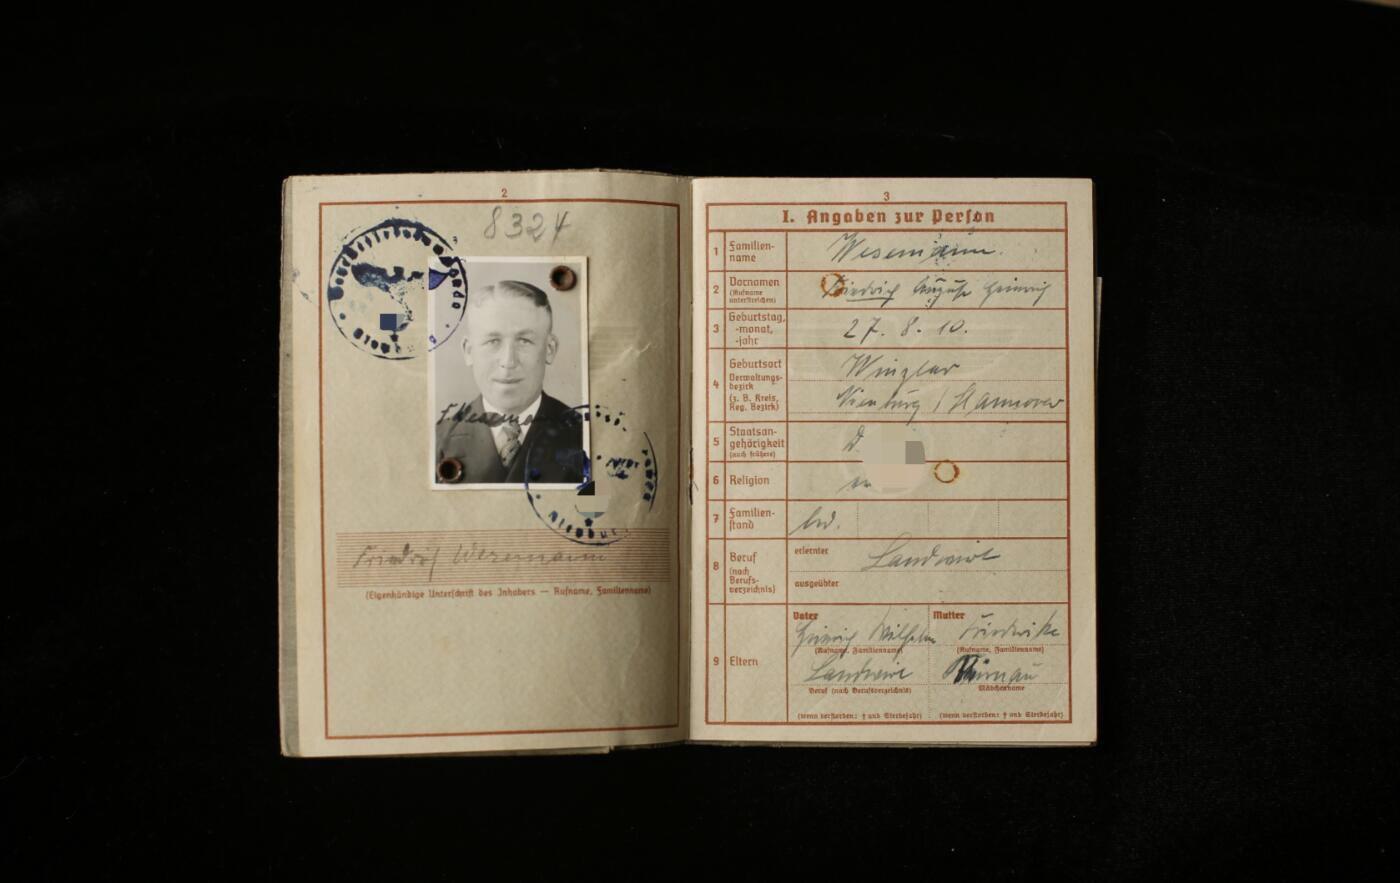 2
8324
Wehrbezirkskommando
Nienburg
F. Wesemann
Friedrich Wesemann
(Eigenhändige Unterschrift des Inhabers — Rufname, Familienname)
3
I. Angaben zur Person
1 Familien-
name
Wesemann.
2 Vornamen
(Rufname
unterstreichen)
Friedrich August Heinrich
3 Geburtstag,
-monat,
-jahr
27. 8. 10.
4 Geburtsort
Verwaltungs-
bezirk
(z. B. Kreis,
Reg. Bezirk)
Winzlar
Nienburg / Hannover
5 Staatsan-
gehörigkeit
(auch frühere)
D.
6 Religion
7 Familien-
stand
led.
8 Beruf
(nach
Berufs-
verzeichnis)
erlernter
Landwirt
ausgeübter
9 Eltern
Vater
Heinrich Wilhelm
(Rufname, Familienname)
Landwirt
Beruf (nach Berufsverzeichnis)
(wenn verstorben: † und Sterbejahr)
Mutter
Friederike
(Rufname, Familienname)
Mädchenname
(wenn verstorben: † und Sterbejahr)